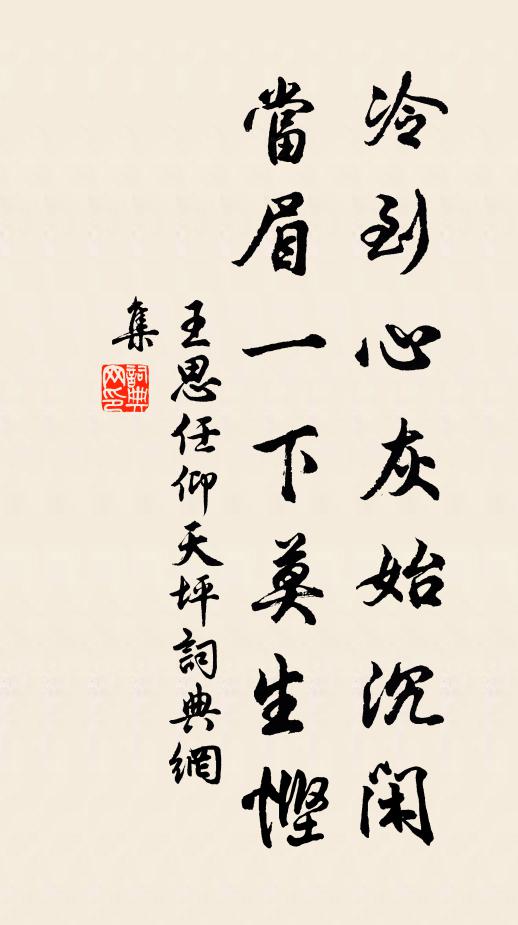 冷到心灰始沉閑
當眉一下莫生慳
王思任仰天坪詞典網
集
詞典網印